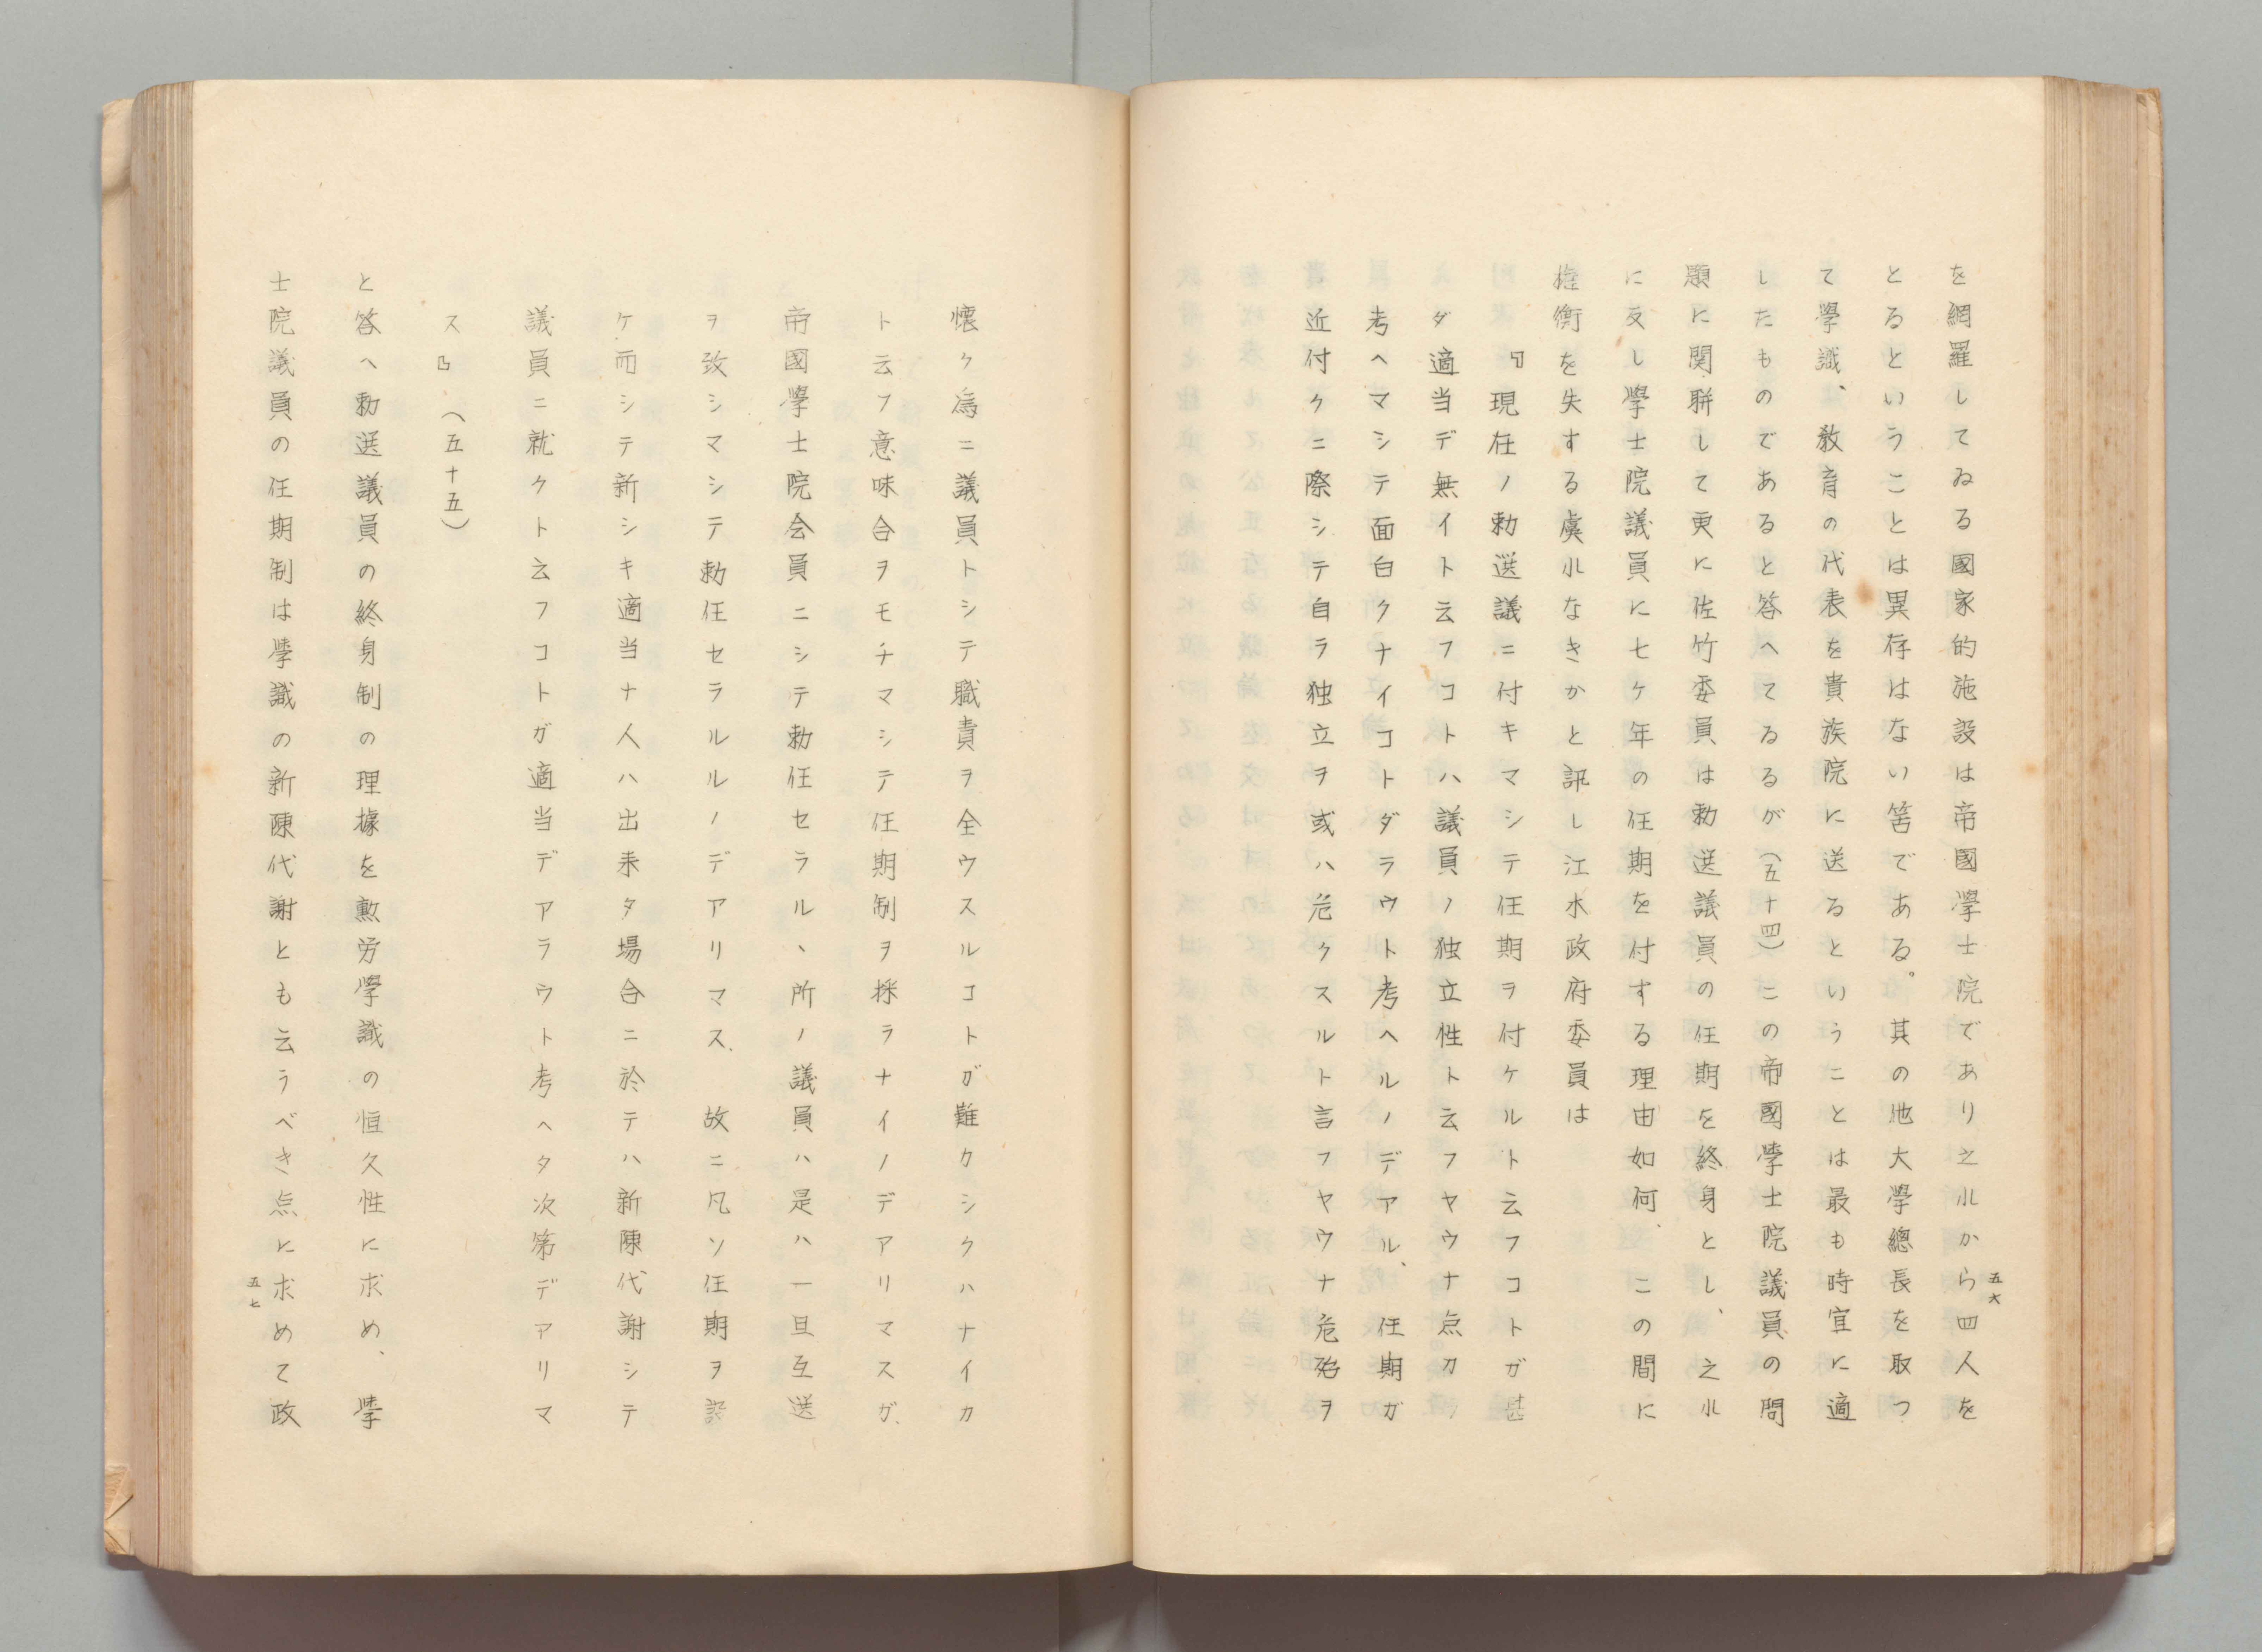 を網羅してゐる國家的施設は帝國學士院であり之れから四人を
とるということは異存はない筈である。其の他大學總長を取つ
て學識、教育の代表を貴族院に送るということは最も時宜に適
したものであると答へてゐるが(五十四)この帝國學士院議員の問
題に関聨して更に佐竹委員は勅選議員の任期を終身とし、之れ
に反し學士院議員に七ケ年の任期を付する理由如何、この間に
権衡を失する虞れなきかと訊し江木政府委員は
『現在ノ勅選議ニ付キマシテ任期ヲ付ケルト云フコトガ甚
ダ適当デ無イト云フコトハ議員ノ独立性ト云フヤウナ点カ
考ヘマシテ面白クナイコトダラウト考ヘルノデアル、任期ガ
近付クニ際シテ自ラ独立ヲ或ハ危クスルト言フヤウナ危殆ヲ
五六
懐ク為ニ議員トシテ職責ヲ全ウスルコトガ難カシクハナイカ
ト云フ意味合ヲモチマシテ任期制ヲ採ラナイノデアリマスガ、
帝國學士院会員ニシテ勅任セラル、所ノ議員ハ是ハ一旦互選
ヲ致シマシテ勅任セラルルノデアリマス、故ニ凡ソ任期ヲ設
ケ而シテ新シキ適当ナ人ハ出来タ場合ニ於テハ新陳代謝シテ
議員ニ就クト云フコトガ適当デアラウト考ヘタ次第デアリマ
ス』(五十五)
と答へ勅選議員の終身制の理據を勲労學識の恒久性に求め、學
士院議員の任期制は學識の新陳代謝とも云うべき点に求めて政
五七